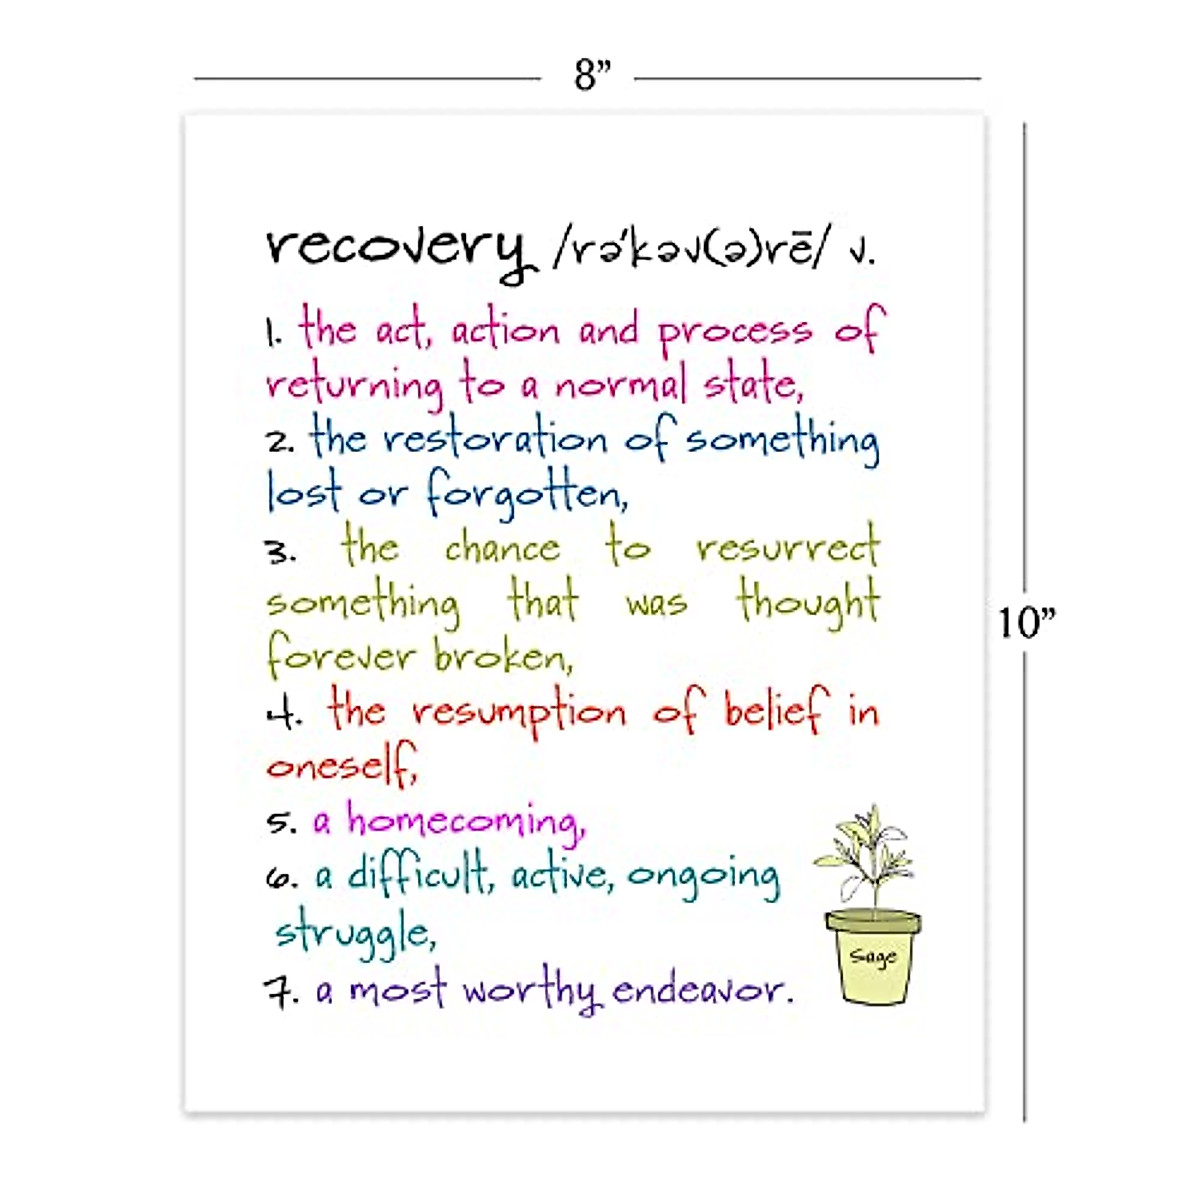 8”
recovery /rə'kəv(ə)rē/ v.
1. the act, action and process of
returning to a normal state,
2. the restoration of something
lost or forgotten,
3. the chance to resurrect
something that was thought
forever broken,
4. the resumption of belief in
oneself,
5. a homecoming,
6. a difficult, active, ongoing
struggle,
7. a most worthy endeavor.
sage
10”